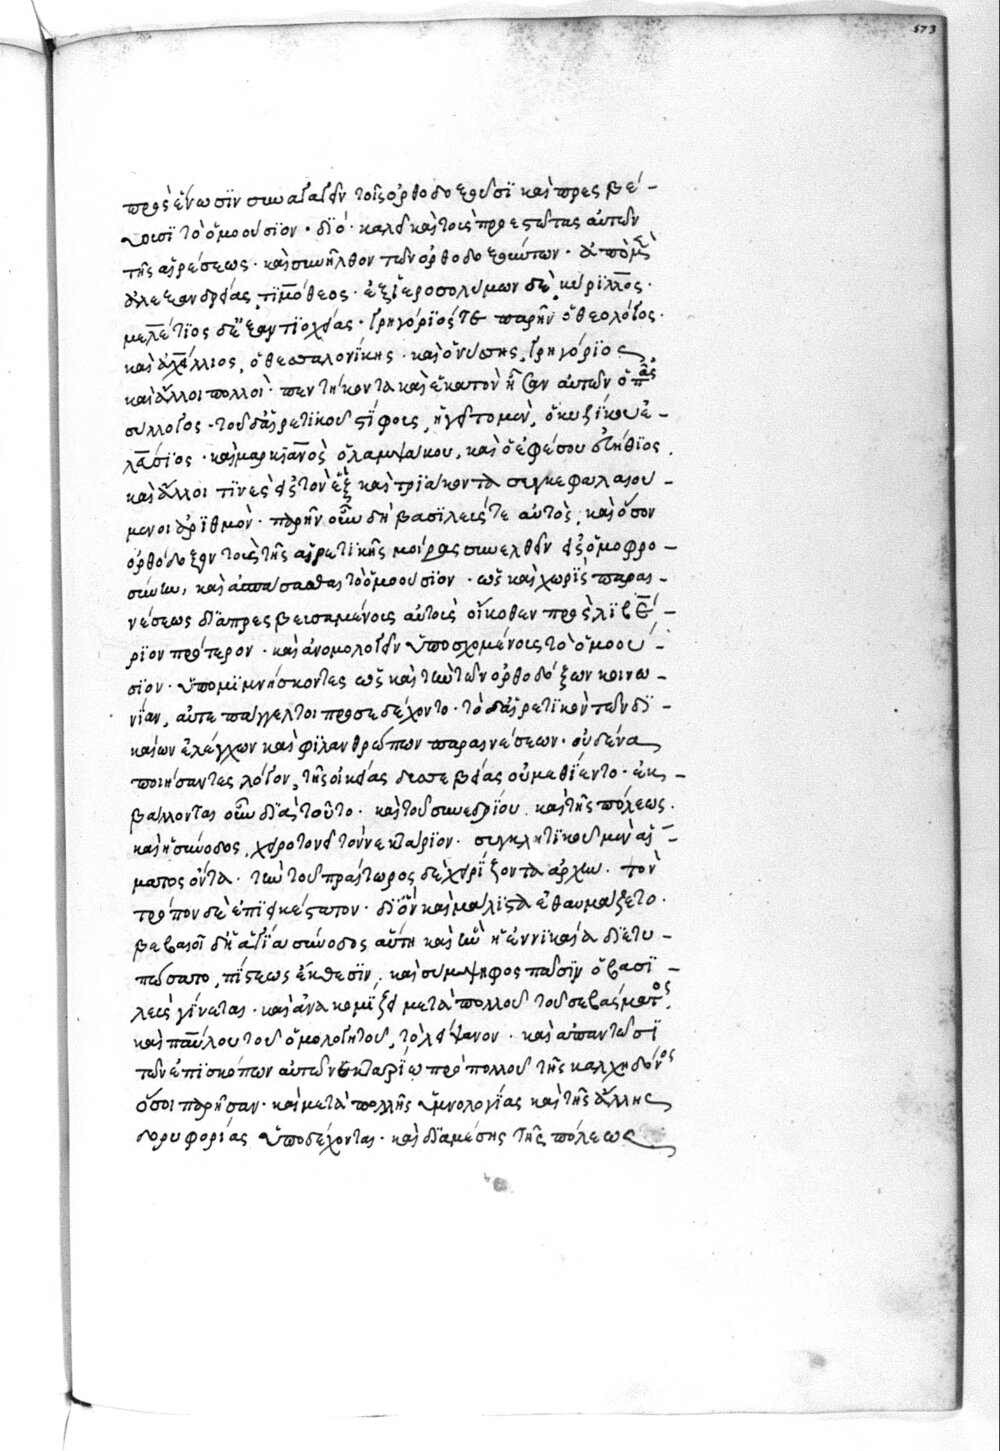 573
πρὸς ἕνωσϊν συναγαγεῖν τοῖς ὀρθοδοξοῦσϊ καὶ πρεσβεύ-
ουσϊ τὸ ὁμοούσϊον· δϊό· καλεῖ καὶ τοὺς προεστῶτας αὐτῶν
τῆς αἱρέσεως· καὶ συνῆλθον τῶν ὀρθοδοξούντων· ἀπὸ μὲν
ἀλεξανδρείας τϊμόθεος· ἐξ ἱεροσολύμων δὲ κύρϊλλος·
μελέτϊος δὲ ἐξ ἀντϊοχείας· γρηγόρϊός τε παρῆν ὁ θεολόγος·
καὶ ἀχόλλιος, ὁ θεσσαλονίκης· καὶ ὁ νύσσης γρηγόριος
καὶ ἄλλοι πολλοί· πεντήκοντα καὶ ἑκατὸν ἦσαν αὐτῶν ὁ πᾶς
σύλλογος· τοῦ δ' αἱρετϊκοῦ στίφους, ἡγεῖτο μὲν, ὁ κυζίκου ἐ-
λεύσϊος· καὶ μαρκϊανὸς ὁ λαμψάκου, καὶ ὁ ἐφέσου εὐήθϊος,
καὶ ἄλλοι τϊνὲς εἰς τὸν ἓξ καὶ τρϊάκοντα συγκεφαλαιού-
μενοι ἀρϊθμὸν· παρῆν οὖν δὴ βασϊλεύς τε αὐτὸς, καὶ ὅσον
ὀρθόδοξον τοὺς τῆς αἱρετϊκῆς μοίρας συνελθεῖν εἰς ὁμοφρο-
σύνην, καὶ ἀσπάσασθαι τὸ ὁμοούσϊον· ὡς καὶ χωρὶς παραι-
νέσεως δϊαπρεσβευσαμένοις αὐτοῖς οἴκοθεν πρὸς λϊβέ-
ρϊον πρότερον· καὶ ἀνομολογεῖν ὑποσχομένοις τὸ ὁμοού-
σϊον· ὑπομϊμνήσκοντες ὡς καὶ τὴν τῶν ὀρθοδόξων κοινω-
νίαν, αὐτεπάγγελτοι προσεδέχοντο· τὸ δ' αἱρετϊκὸν τῶν δϊ-
καίων ἐλέγχων καὶ φϊλανθρώπων παραινέσεων· οὐδένα
ποιήσαντες λόγον, τῆς οἰκείας δυσσεβείας οὐ μεθΐεντο· ἐκ-
βάλλονται οὖν δϊὰ τοῦτο· καὶ τοῦ συνεδρίου καὶ τῆς πόλεως·
καὶ ἡ σύνοδος, χειροτονεῖ τὸν νεκτάρϊον· συγκλητϊκοῦ μὲν αἵ-
ματος ὄντα· τὴν τοῦ πραίτωρος δὲ χειρίζοντα ἀρχὴν· τὸν
τρόπον δὲ ἐπϊεικέστατον· δϊ' ὃν καὶ μάλϊστα ἐθαυμάζετο·
βεβαιοῖ δὴ ἁγία σύνοδος αὕτη καὶ ἣν ἡ ἐν νϊκαία δϊετυ-
πώσατο, πίστεως ἔκθεσϊν, καὶ σύμψηφος πᾶσϊν ὁ βασϊ-
λεὺς γίνεται· καὶ ἀνακομϊζεῖ μετὰ πολλοῦ τοῦ σεβάσματος,
καὶ παύλου τοῦ ὁμολογητοῦ, τὸ λείψανον· καὶ ἀπαντῶσϊ
τῶν ἐπϊσκόπων αὐτῷ νεκταρίῳ πρὸ πολλοῦ τῆς καλχηδόνος
ὅσοι παρῆσαν· καὶ μετὰ πολλῆς ὑμνολογίας καὶ τῆς ἄλλης
δορυφορίας ὑποδέχονται· καὶ δϊαμέσης τῆς πόλεως